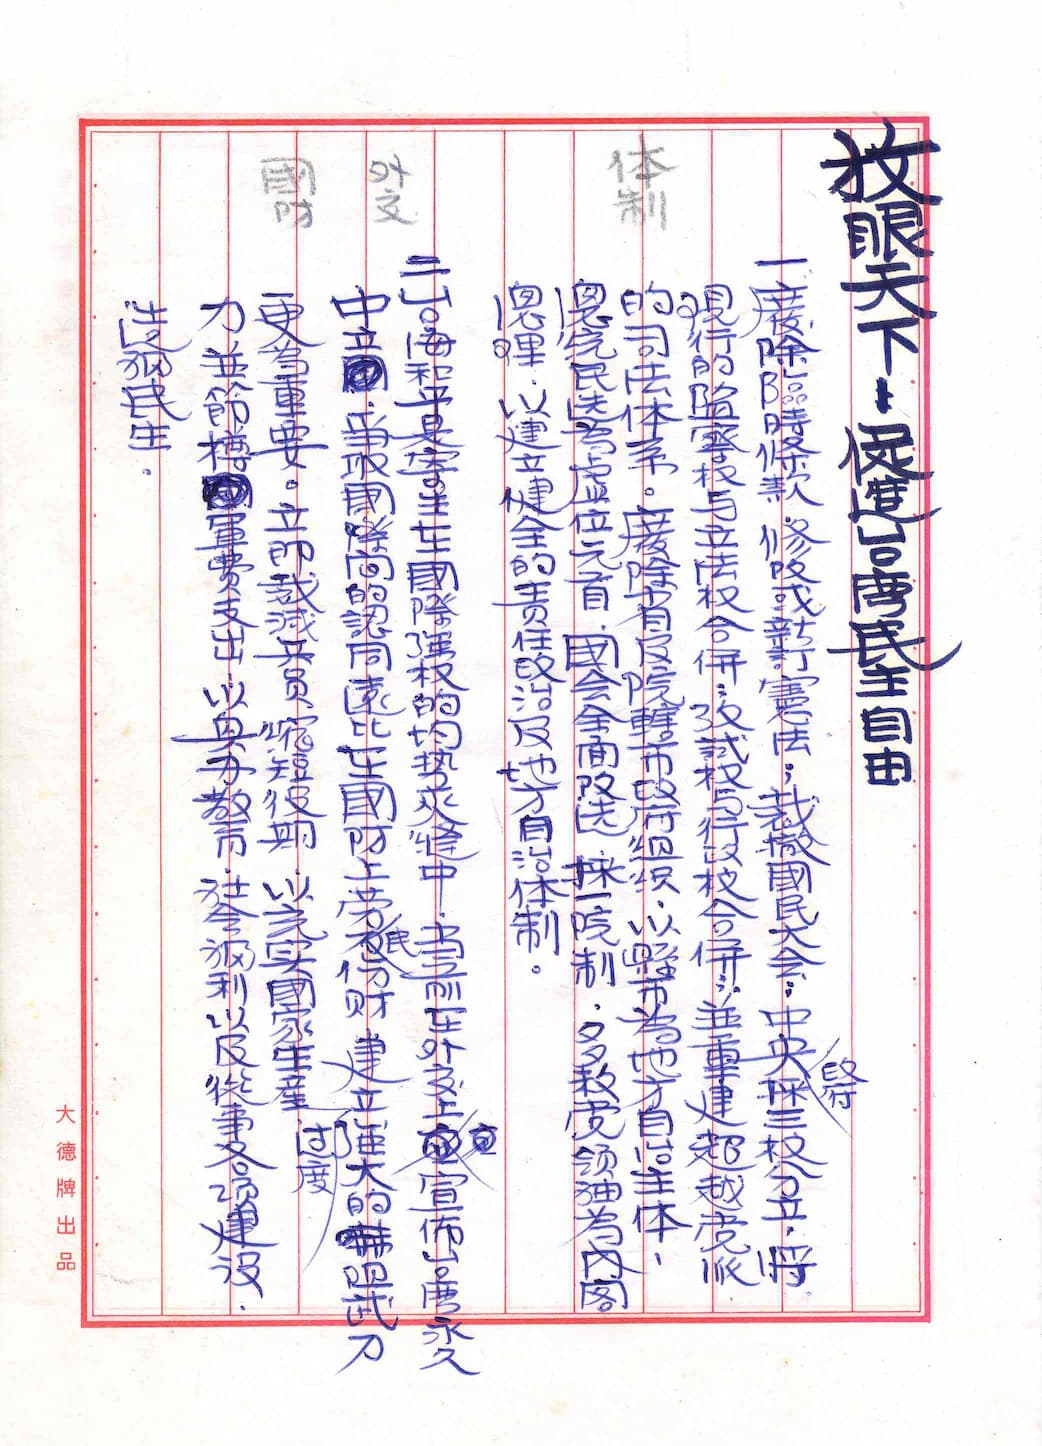 放眼天下–促進台湾民主自由
体制
一廢除臨時條款、修改或新訂憲法，裁撤國民大会：中央政府採三权分立，将
現行的監察权与立法权合併；攷試权与行政权合併；並重建超越党派
的司法体系。廢除省及院轄市政府組织、以縣市為地方自治主体、
總统民选為虛位元首，國会全面改选、採一院制，多数党领袖為內閣
總理，以建立健全的責任政治及地方自治体制。
外交
二台海和平是寄生在國際强权的均勢夾縫中，当前在外交上宣佈台湾永久
中立，爭取國際间的認同遠比在國防上劳民伤财 建立过度強大的嚇阻武力
國防
更為重要。立即裁減兵員 縮短役期 以充实國家生產
力並節樽軍費支出，以興办教育、社会福利以及從事各項建设，
造福民生。
大德牌出品